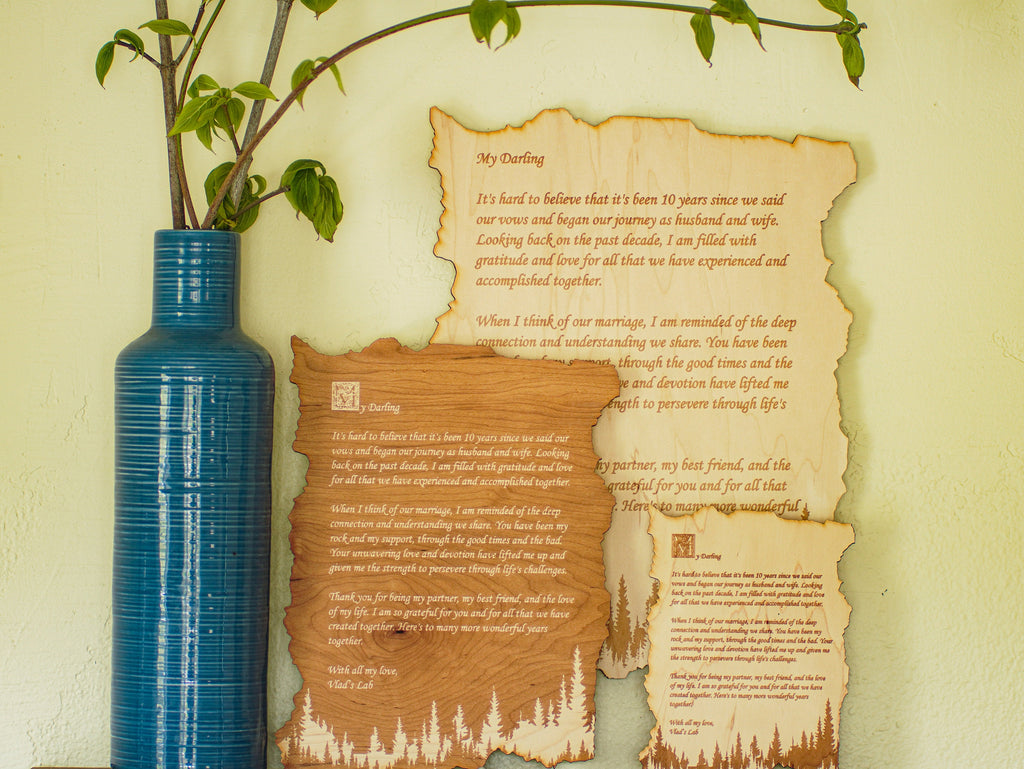 My Darling
It's hard to believe that it's been 10 years since we said
our vows and began our journey as husband and wife.
Looking back on the past decade, I am filled with
gratitude and love for all that we have experienced and
accomplished together.
When I think of our marriage, I am reminded of the deep
connection and understanding we share. You have been
support, through the good times and the
and devotion have lifted me
to persevere through life's
partner, my best friend, and the
grateful for you and for all that
Here's to many more wonderful
y Darling
It's hard to believe that it's been 10 years since we said our
vows and began our journey as husband and wife. Looking
back on the past decade, I am filled with gratitude and love
for all that we have experienced and accomplished together.
When I think of our marriage, I am reminded of the deep
connection and understanding we share. You have been my
rock and my support, through the good times and the bad.
Your unwavering love and devotion have lifted me up and
given me the strength to persevere through life's challenges.
Thank you for being my partner, my best friend, and the love
of my life. I am so grateful for you and for all that we have
created together. Here's to many more wonderful years
together.
With all my love,
Vlad's Lab
y Darling
It's hard to believe that it's been 10 years since we said our
vows and began our journey as husband and wife. Looking
back on the past decade, I am filled with gratitude and love
for all that we have experienced and accomplished together.
When I think of our marriage, I am reminded of the deep
connection and understanding we share. You have been my
rock and my support, through the good times and the bad. Your
unwavering love and devotion have lifted me up and given me
the strength to persevere through life's challenges.
Thank you for being my partner, my best friend, and the love
of my life. I am so grateful for you and for all that we have
created together. Here's to many more wonderful years
together.
With all my love,
Vlad's Lab